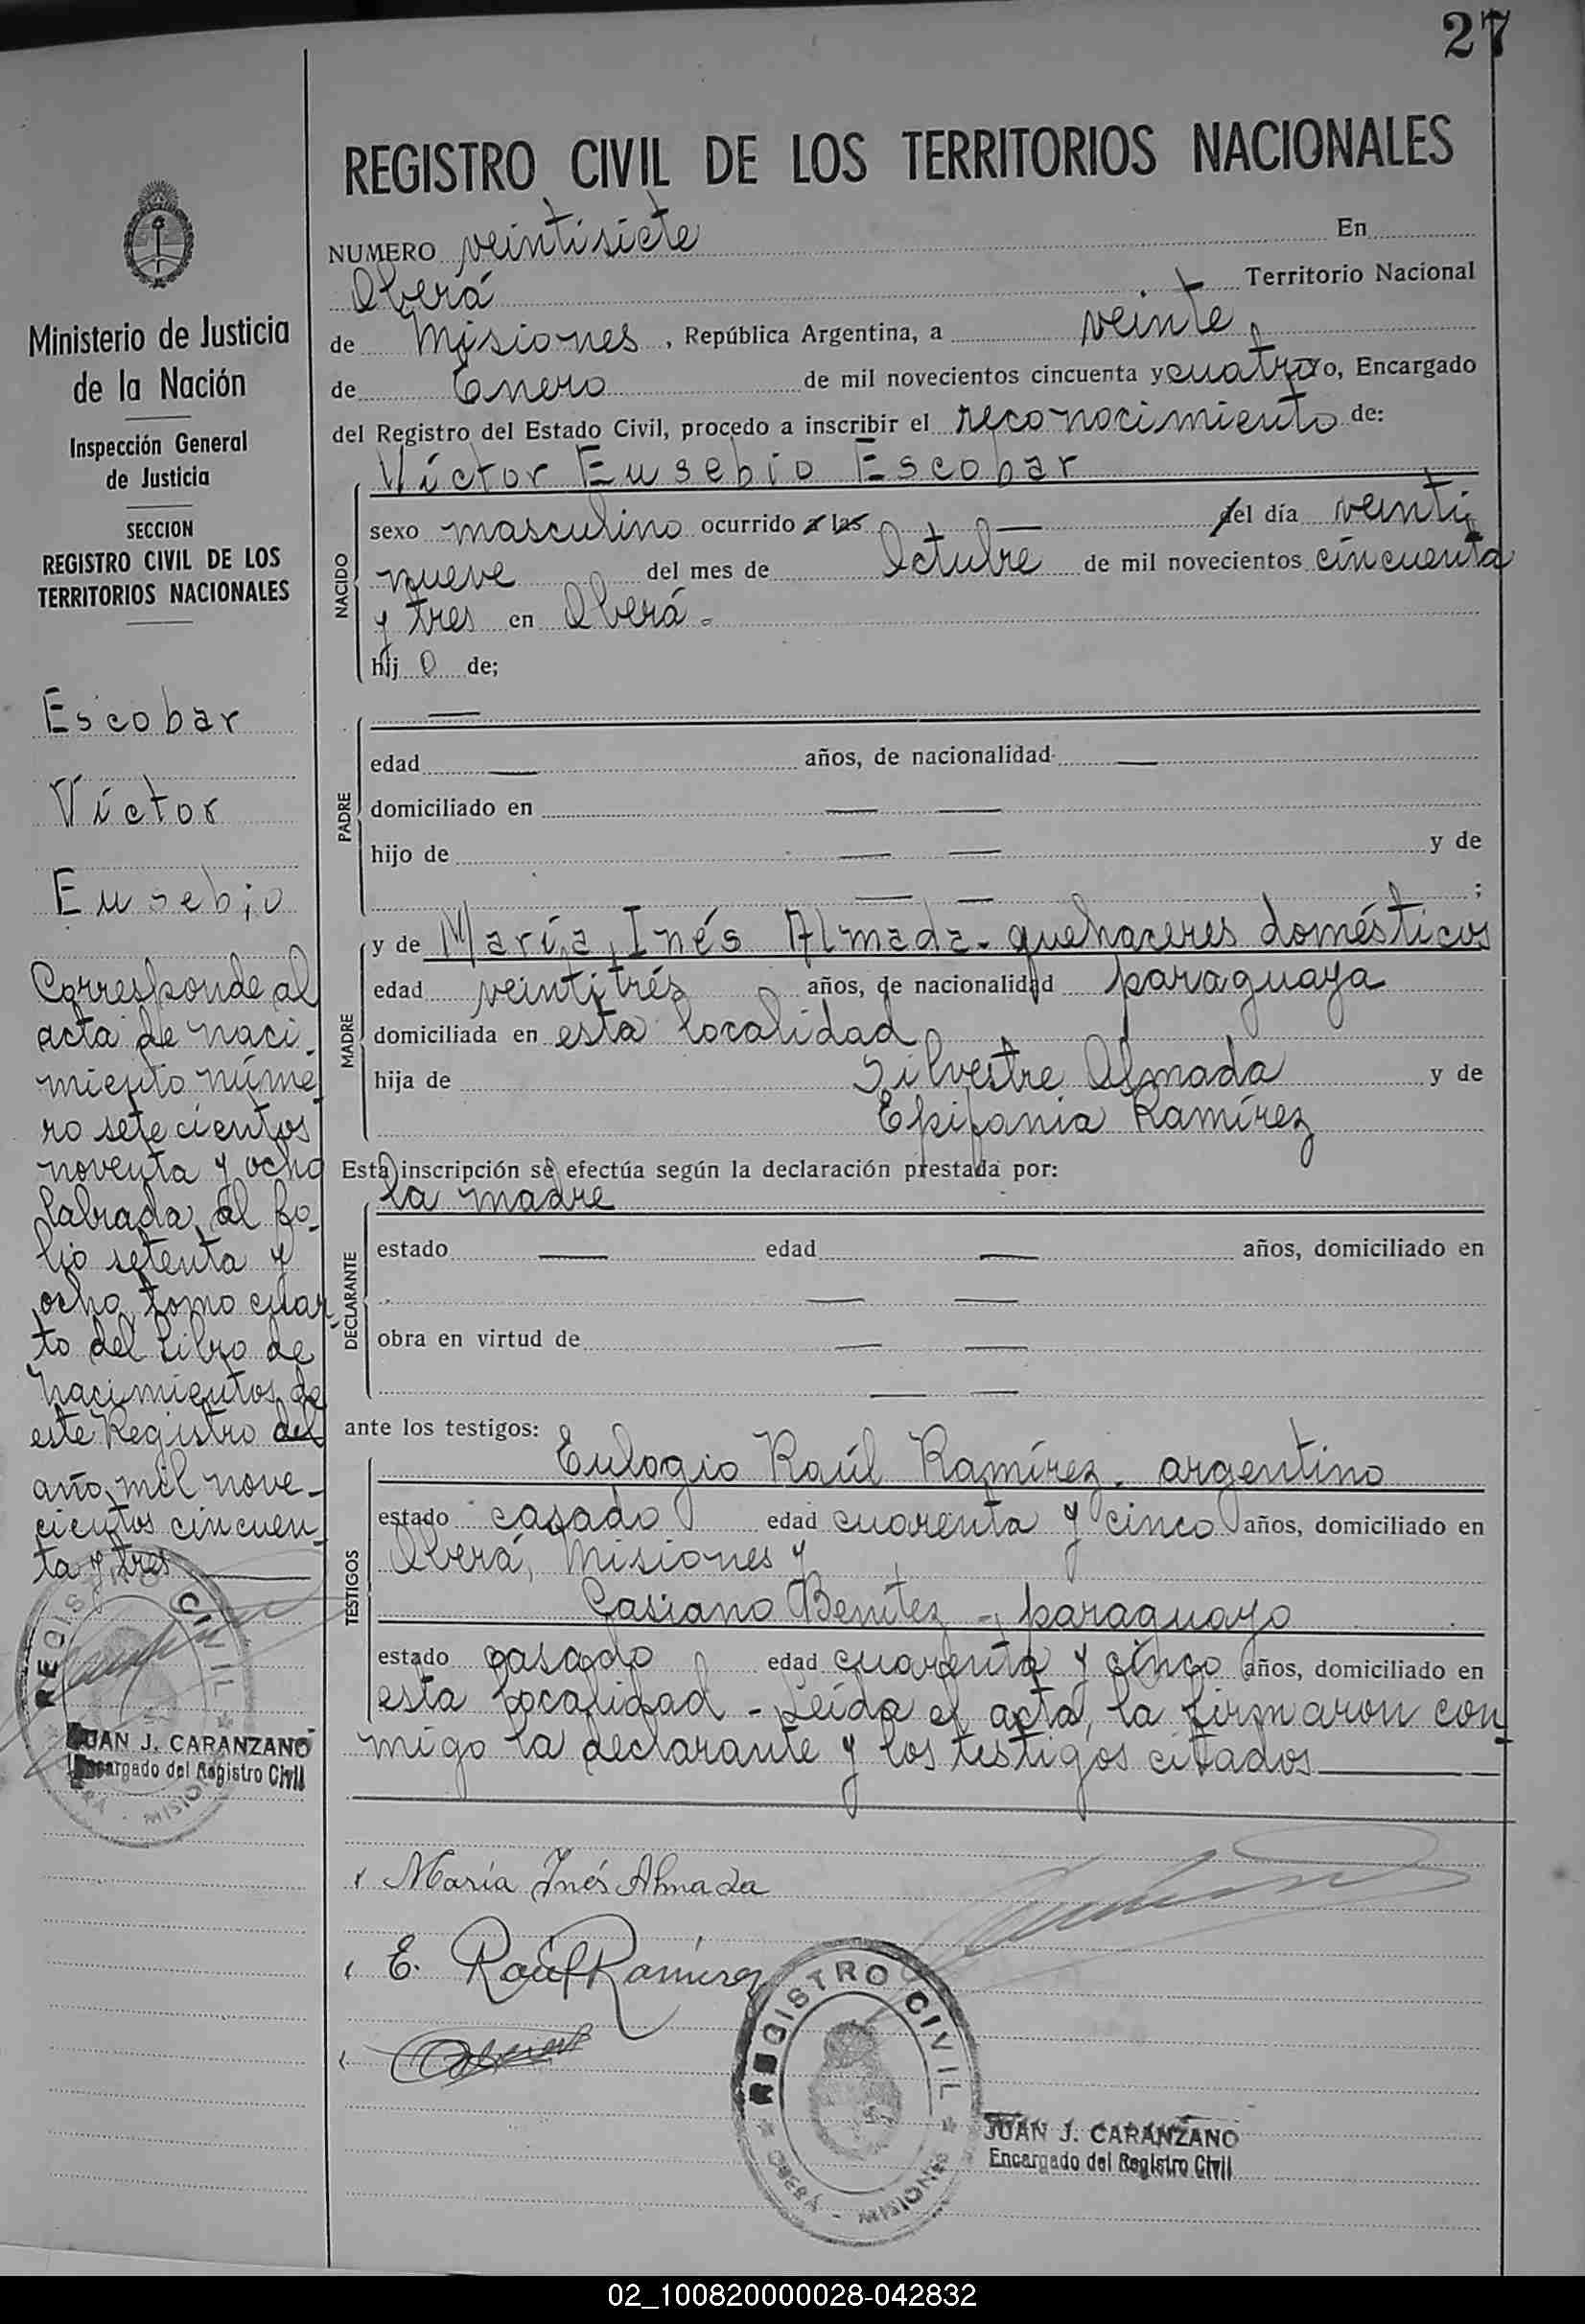 27
REGISTRO CIVIL DE LOS TERRITORIOS NACIONALES
NUMERO veintisiete En
Oberá Territorio Nacional
de Misiones, República Argentina, a veinte,
de Enero de mil novecientos cincuenta y cuatro yo, Encargado
del Registro del Estado Civil, procedo a inscribir el reconocimiento de:
Víctor Eusebio Escobar
NACIDO
sexo masculino ocurrido a las — del día veinti
nueve del mes de Octubre de mil novecientos cincuenta
y tres en Oberá.
hij o de;
PADRE
—
edad — años, de nacionalidad —
domiciliado en — —
hijo de — — y de
— — ;
MADRE
y de María Inés Almada - quehaceres domésticos
edad veintitrés años, de nacionalidad paraguaya
domiciliada en esta localidad
hija de Silvestre Almada y de
Epifania Ramírez
Esta inscripción se efectúa según la declaración prestada por:
la madre
DECLARANTE
estado — edad — años, domiciliado en
— —
obra en virtud de — —
— —
ante los testigos:
TESTIGOS
Eulogio Raúl Ramírez - argentino
estado casado edad cuarenta y cinco años, domiciliado en
Oberá, Misiones y
Casiano Benítez - paraguayo
estado casado edad cuarenta y cinco años, domiciliado en
esta localidad - Leída el acta, la firmaron con
migo la declarante y los testigos citados
María Inés Almada
E. Raúl Ramírez
REGISTRO CIVIL
OBERÁ - MISIONES
JUAN J. CARANZANO
Encargado del Registro Civil
Ministerio de Justicia
de la Nación
Inspección General
de Justicia
SECCION
REGISTRO CIVIL DE LOS
TERRITORIOS NACIONALES
Escobar
Víctor
Eusebio
Corresponde al
acta de naci
miento núme
ro setecientos
noventa y ocho
labrada al fo-
lio setenta y
ocho, tomo cuar-
to del Libro de
Nacimientos de
este Registro del
año mil nove-
cientos cincuen
ta y tres
REGISTRO CIVIL
JUAN J. CARANZANO
Encargado del Registro Civil
02_100820000028-042832